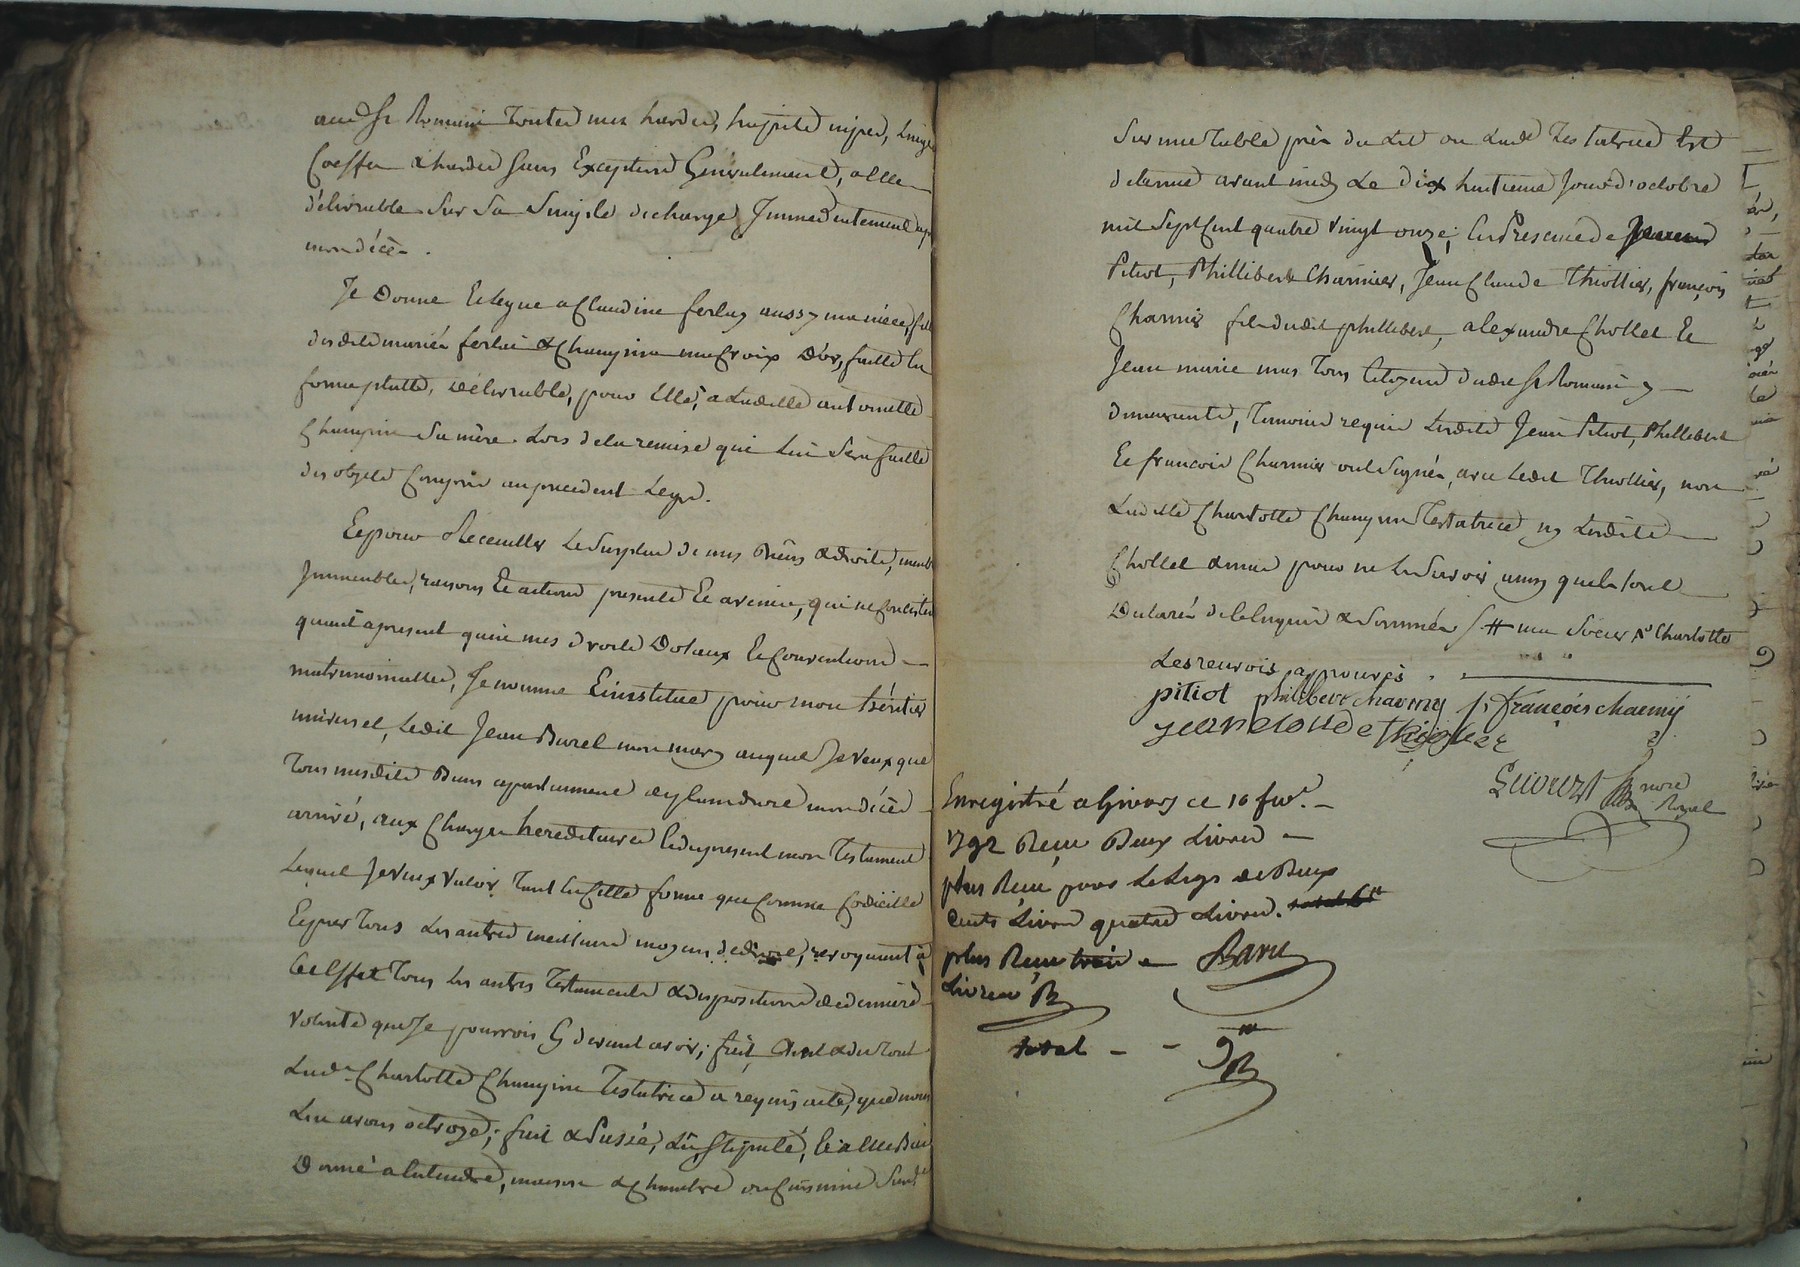 aud St Romain Toutes mes hardes, habits nipes, linge
Coeffes & hardes Sans Exception Generalement, a Elle
délivrable Sur Sa Simple décharge Immediatement apr
mon décès.
Je Donne Et legue a Claudine ferlay aussy ma niéce, fille
desdits mariés ferlai & Champin une Croix D'or, faitte en
forme platte, Délivrable, pour Elle, a Laditte antoinette
Champin Sa mère Lors de la remise qui Lui Sera faitte
des objets Compris au precedent Legs.
Et pour Recceuillir Le Surplus de mes Biens & droits, meub
Immeubles, raisons Et actions presents Et avenir, qui ne Consistent
quant apresent qu'en mes droits Dotaux Et Conventions
matrimonialles, Je nomme Et institue pour mon héritier
universel, Ledit Jean Burel mon mary auquel Je Veux que
Tous mesdits Biens apartiennent deplein droit mon décès
arrivé, aux Charges hereditaires Et du present mon Testament
Lequel Je Veux Valoir Tant En Cette forme que Comme Codicille
Et par Tous Les autres meilleurs moyens de droit, revoquant à
Cet Effet Tous les autres Testaments & dispositions de derniere
Volonté que Je pourrois Cy devant avoir; fait, Dont & du Tout
Lade Charlotte Champin Testatrice a requis acte, que nous
Lui avons octroyé; fait & Passé, Lu, Stipulé, Et a Elle Bien
Donné a Entendre, maison & Chambre ou Cuisine Sus de
Sur une table près du Lit ou Lade Testatrice Est
detenue avant midy Le dix huitieme Jour d'octobre
mil Sept Cent quatre Vingt onze; En Presence de Jean
Pitiot, Phillibert Charmier, Jean Claude Thiollier, françois
Charmier fils dudit phillibert, alexandre Chollet Et
Jean marie mas Tous Citoyens dudit St Romain y
demeurants, Temoins requis Lesdits Jean Pitiot, Phillibert
Et francois Charmier ont Signés, avec Ledit Thiollier, non
Laditte Charlotte Champin Testatrice ny Lesdits
Chollet & mas pour ne Le Savoir ainsy quels ont
Declarés de Ce Enquis & Sommés /# ma Soeur /° Charlotte
Les renvois approuvés
pitiot philibert charmy f. françois charmy
jean cloude thiollier
nore Royal
Enregistré a Givors ce 10 fwr.
1792 Reçu Deux Livres
plus Reçu pour Le Legs de Deux
Cents Livres quatre Livres. total 6#
plus Reçu trois
Livres
total - - 9#